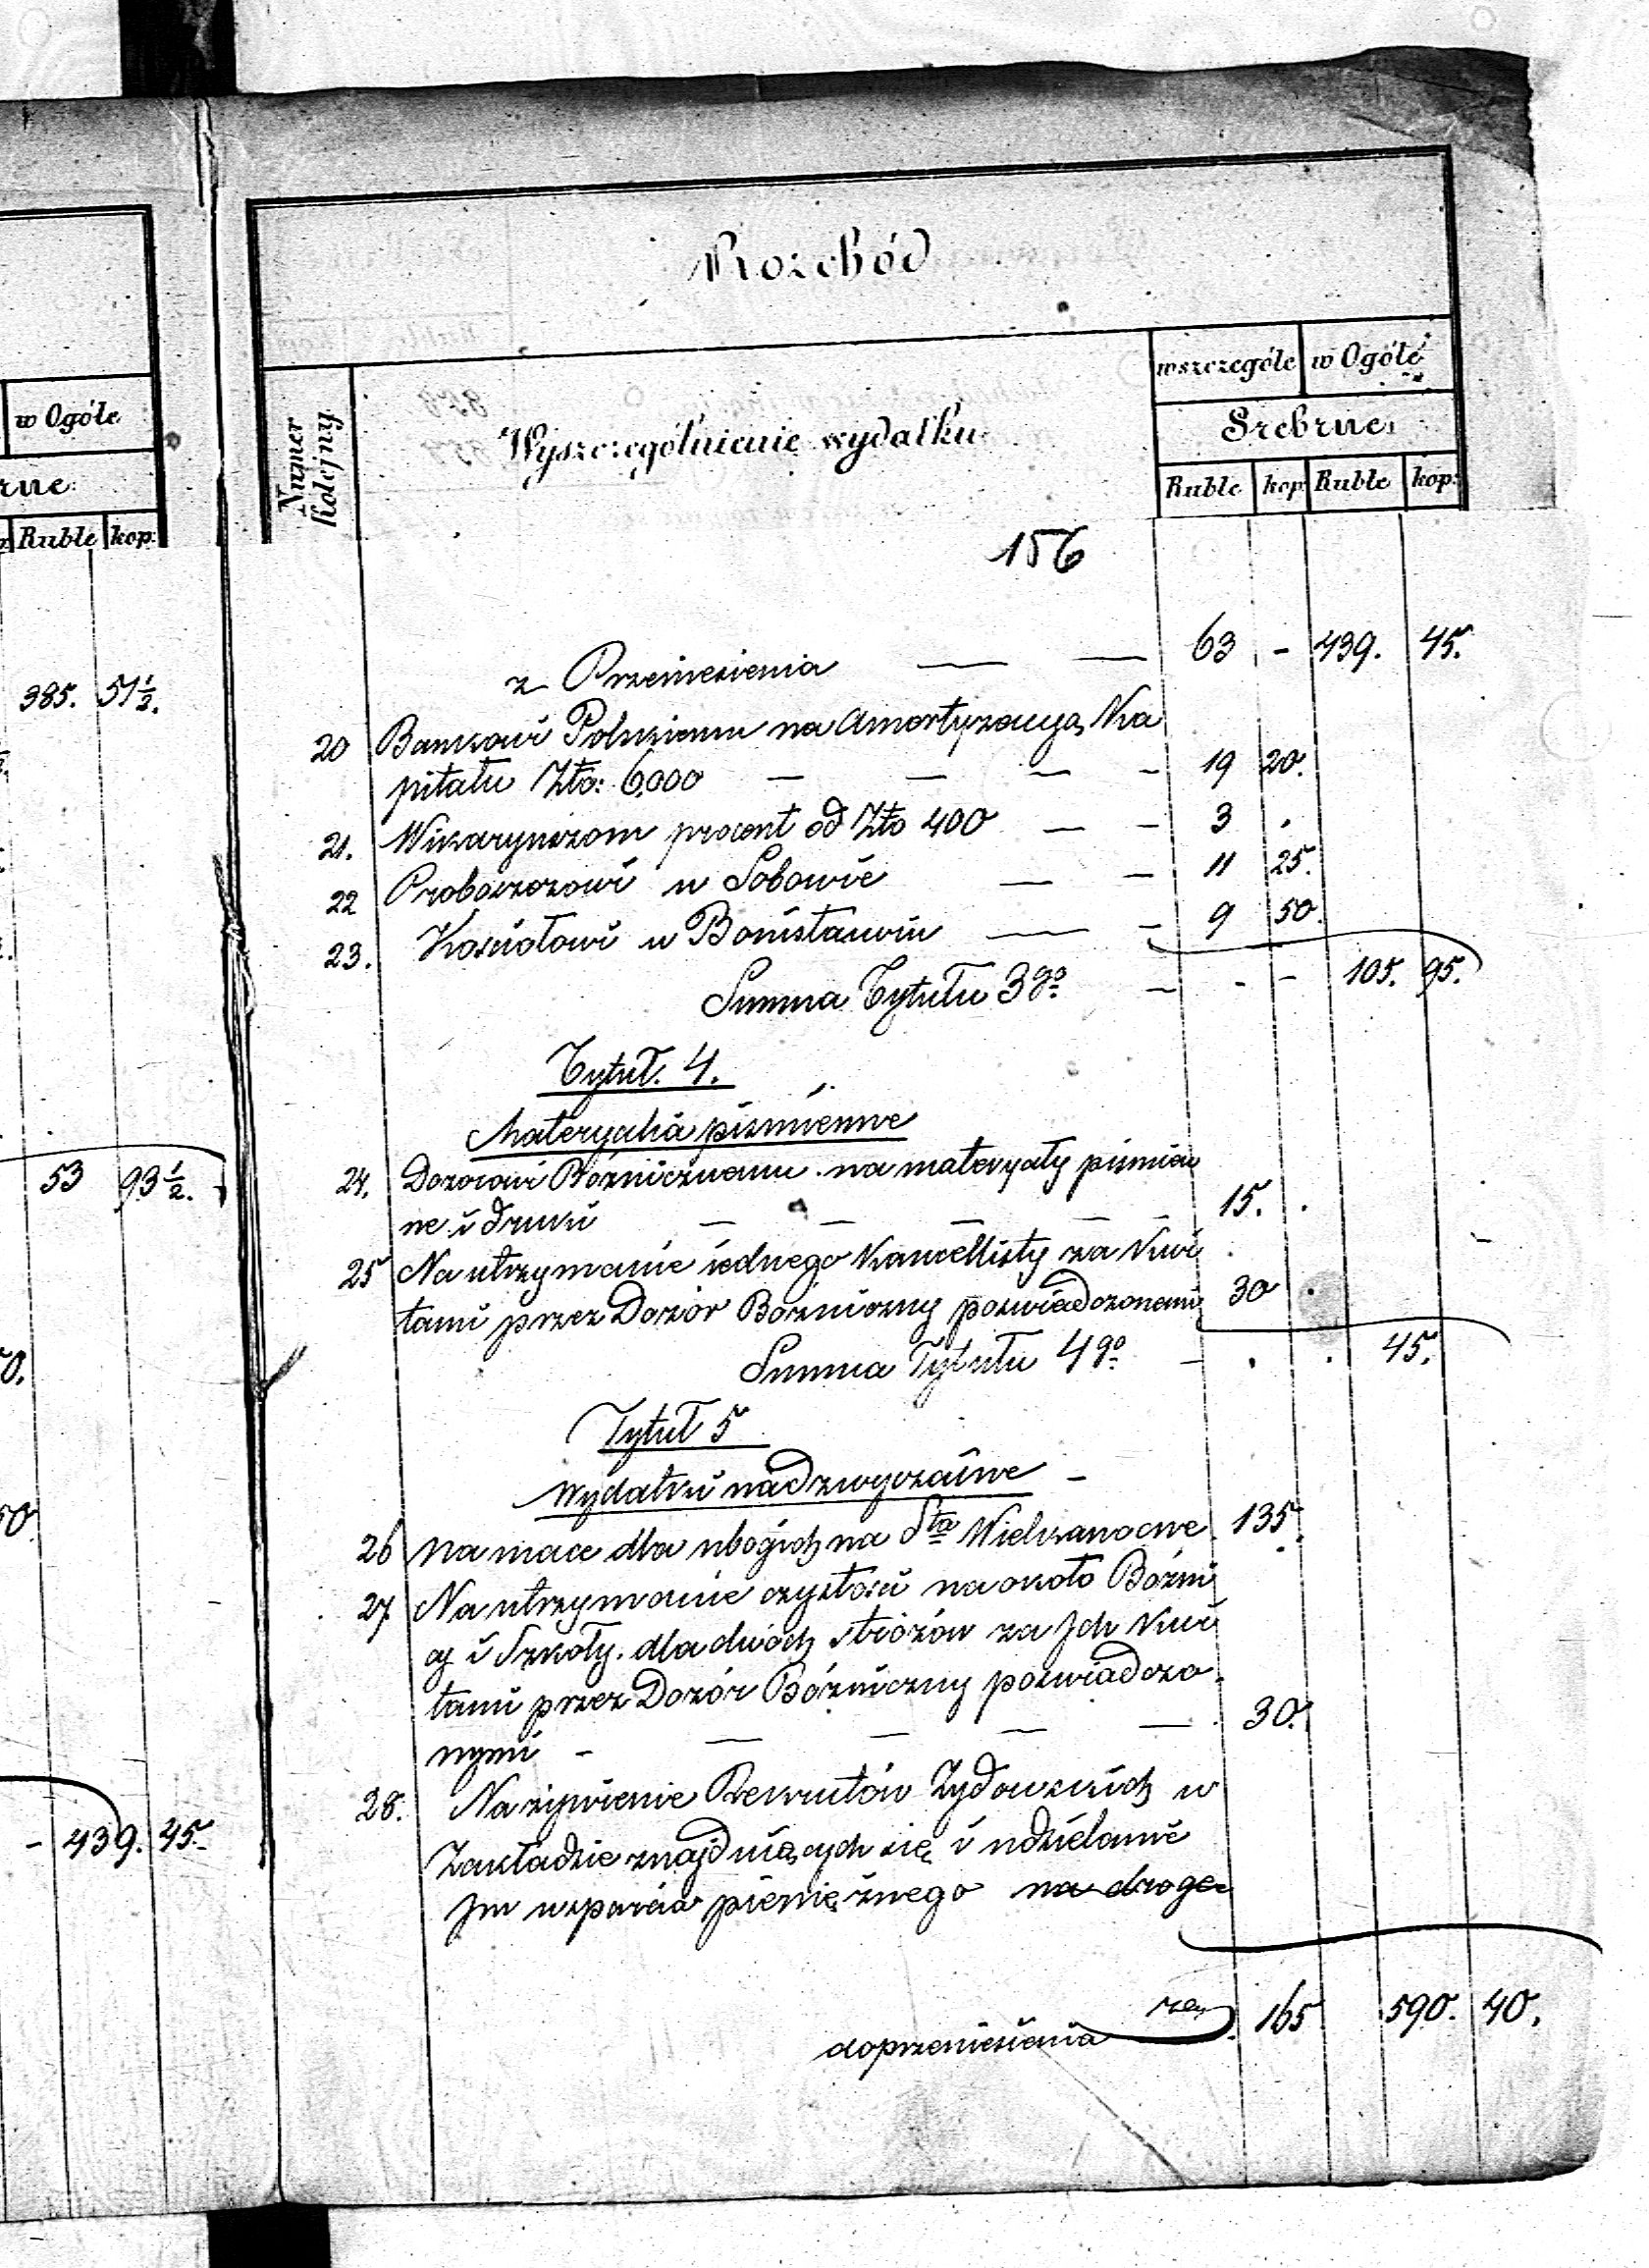 w Ogóle
rne
Ruble kop:
385. 51½.
53 93½.
50.
50
- 439. 45.
Rozchód
Numer Kolejny
Wyszczególnienie wydatku
wszczególe w Ogóle
Srebrne
Ruble kop: Ruble kop:
156
z Przeniesienia 63 - 439. 45.
20 Bankowi Polskiemu na amortyzacyą Ka
pitału Złto: 6,000 19 20.
21. Wikaryuszom procent od Złto 400 3 .
22 Proboszczowi w Sobowie 11 25.
23. Kościołowi w Bonisławiu 9 50.
Summa Tytułu 3go - - - 105. 95.
Tytuł. 4.
Materyalia piśmienne
24. Dozorowi Bóżnicznemu na materyały piśmien
ne i druki 15. .
25 Na utrzymanie iednego Kancellisty za Kwi
tami przez Dozór Bóżniczny poswiadczonemi 30 .
Summa Tytułu 4go - . . 45.
Tytuł 5
Wydatki nadzwyczaine -
26 Na mace dla ubogich na Sta Wielkanocne 135.
27 Na utrzymanie czystosci na około Bóżni
cy i Szkoły. dla dwóch stróżów za Ich Kwi
tami przez Dozór Bóżniczny poswiadczo
nymi - 30.
28. Na żywienie Rekrutów Żydowskich w
Zakładzie znajduiących się i udzielanie
Im wsparcia pieniężnego na droge
rs.
do przeniesienia 165 590. 40.